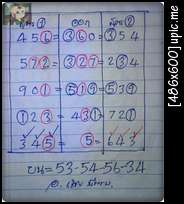 ① ออก ②
456 = 360 = 354
572 = 327 = 234
901 = 519 = 539
123 = 431 = 721
345 = 5 = 643
บน = 53-54-56-34
[486x600] upic.me